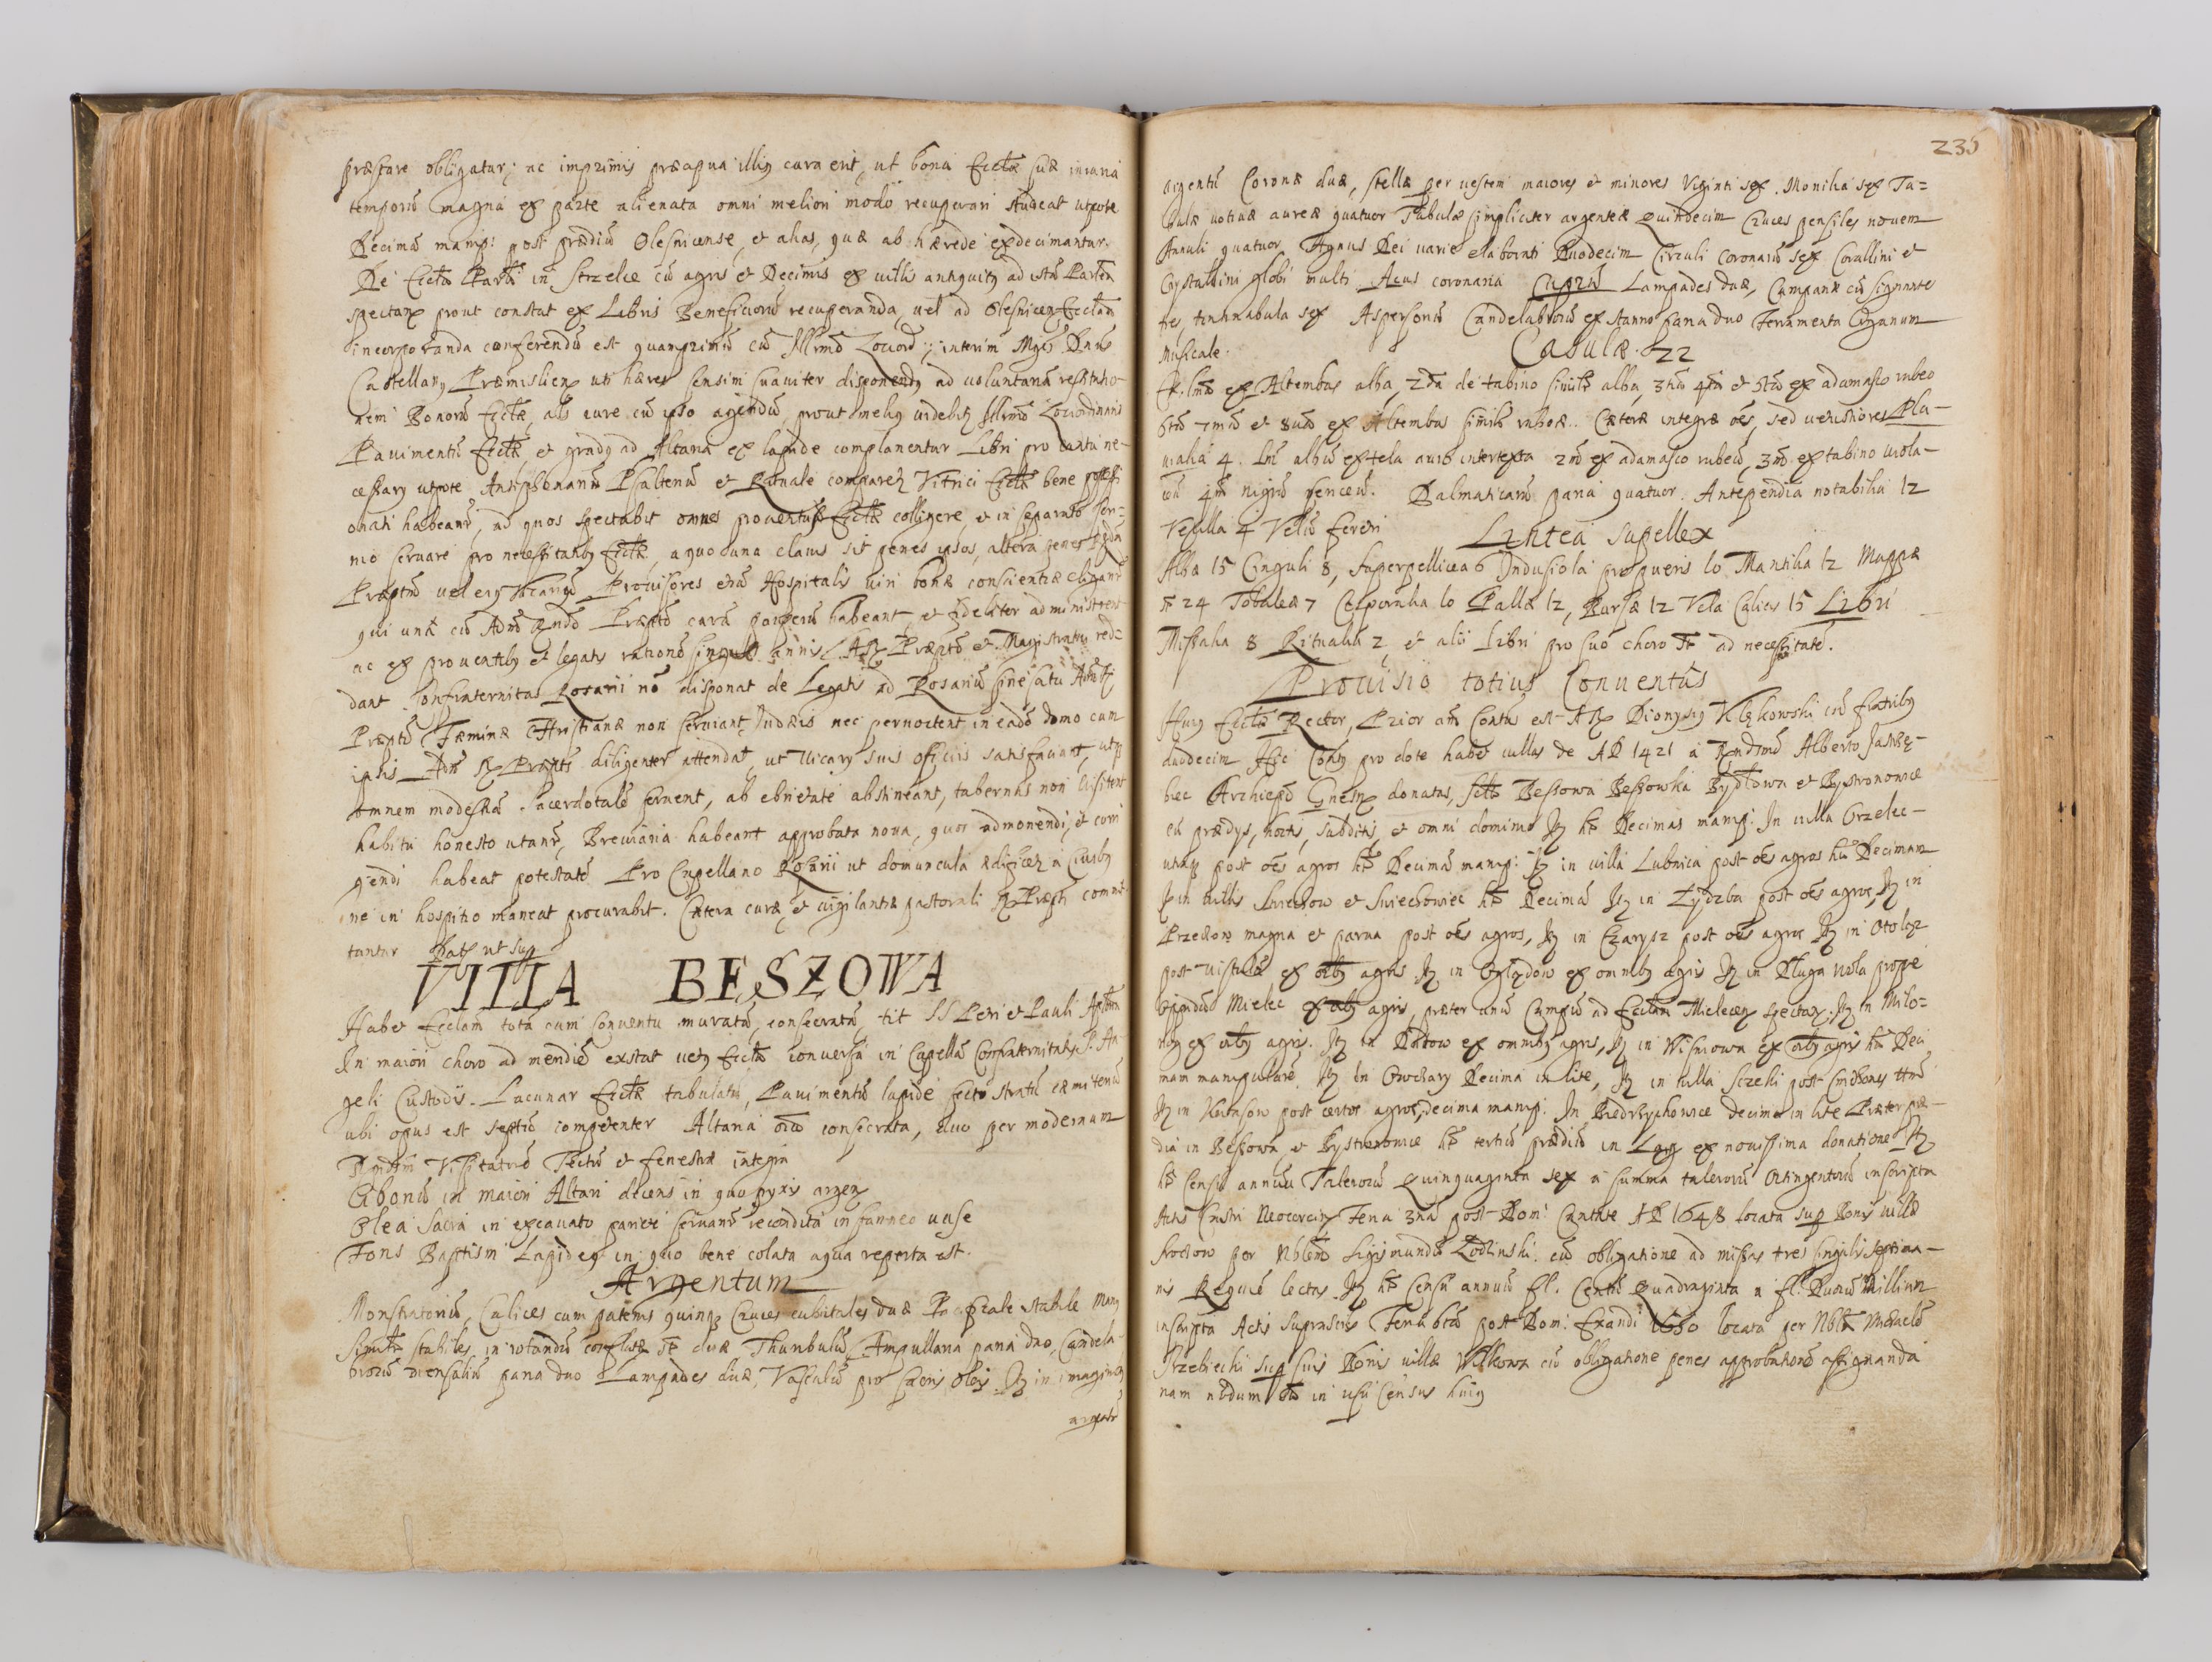 præstare obligatur; ac imprimis præcipua illiq cura erit, ut bona Eccłæ suæ iniuria
temporū magna ex parte alienata omni meliori modo recuperari studeat utpote
Decimā manip: post prædiū Olesnicense, et alias, quæ ab hærede exdecimantur.
De Eccła Parłi in Strzelce cū agris et Decimis ex villis antiquitq ad istā
spectan prout constat ex Libris Beneficiorū recuperanda, vel ad Olesnicen Eccłam
incorporanda conferendū est quamprimū cū Illrmo Loci ord: interim Mgcs Dnus
Castellanq Præmislien uti hæres sensim suaviter disponendq ad voluntariā restitutio-
nem Bonorū Eccłæ, als iure cū ipso agendū, prout meliq videbit Illrmo Loci ordinario
Pavimentū Eccłæ et gradq ad Altaria ex lapide complanentur Libri pro cantu ne-
cessary utpote Antiphonariū Psalteriū et Rituale comparet Vitrici Eccłæ bene possessi-
onati habeant, ad quos spectabit omnes proventus Eccłæ colligere et in separato scri-
nio servare pro necessitatibq Eccłæ a quo una clavis sit penes ipsos, altera penes
Præptm vel eiq Vicariū Provisores etiā Hospitalis viri bonæ conscientiæ eligant
qui una cū Adm Rndo Præpto curā pauperū habeant, et fideliter administrent
ac ex proventibq et legatis rationē singulis annis Præpto et Magistratui red-
dant Confraternitas Rosarii nō disponat de Legatis ad Rosariū sine scitu
Præpti Fæminæ Christianæ non serviant Judæis nec pernoctent in eadē domo cum
ipsis Adm R Præpts diligenter attendat, ut Vicary suis officiis satisfaciant, utq
omnem modestiā sacerdotalē servent, ab ebrietate abstineant, tabernas non visitent
habitu honesto utant, Breviaria habeant approbata nova, quos admonendi, et corri
gendi habeat potestatē Pro Capellano Rosarii ut domuncula ædificet a Civibq
ne in hospitio maneat procurabit. Cætera curæ et vigilantiæ pastorali R Præpti commit-
tantur Dat ut sup
VILLA BESZOWA
Habet Eccłam totā cum Conventu muratā, consecratā, tit SS Petri et Pauli
In maiori choro ad meridiē exstat vetq Eccła conversa in Capellā Confraternitatis S. An-
geli Custodis. Lacunar Eccłæ tabulatū, Pavimentū lapide secto stratū cæmiteriū
ubi opus est septū competenter Altaria octo consecrata, duo per modernum
Rndm Visitatorē Tectū et fenestræ integra
Ciboriū in maiori Altari decens in quo pyxis argen
Olea sacra in excavato pariete servant recondita in stanneo vase
Fons Baptism Lapideq in quo bene colata aqua reperta est.
Argentum
Monstratoriū, Calices cum patenis quinq Cruces cubitales duæ Pacificale stabile
similr stabiles in rotundū duæ Thuribulū Ampullaria paria duo, Candela-
brorū mensaliū paria duo Lampades duæ, Vasculū pro sacris oleis It in imaginibq
argentē
235
argentū Coronæ duæ, stellæ per vestem maiores et minores Viginti sex. Monilia sex Ta=
bulæ votivæ aureæ quatuor Tabulæ simpliciter argenteæ Quindecim Cruces pensiles novem
Annuli quatuor, Agnus Dei varie elaborati Duodecim Circuli coronarū sex Corallini et
Crystallini globi multi Acus coronaria Cuprū Lampades duæ, Campanæ cū signante
tres, tintinabula sex Aspersoriū Candelabrorū ex stanno paria duo Ferramenta Organum
Musicale.
Casulæ. 22
1ma ex Altembas alba, 2da de tabino similr alba, 3tia 4ta et 5ta ex adamasco rubeo
6ta 7ma et 8va ex Altembas similr rubeæ. Cæteræ integræ oēs, sed vetustiores Plu-
vialia 4. 1m albū ex tela auro intertexta 2m ex adamasco rubeū, 3m ex tabino viola-
ceū 4m nigrū sericeū. Dalmaticarū paria quatuor. Antependia notabilia 12
Vexilla 4 Velū feretri
Lintea supellex
Albæ 15 Cinguli 8, superpellicea 6 Indusiola pro pueris 10 Mantilia 12 Mappæ
24 Tobaleæ 7 Corporalia 10 Pallæ 12, Bursæ 12 Vela Calicis 15 Libri
Missalia 8 Ritualia 2 et alii libri pro suo choro ad necessitatē.
Provisio totius Conventus
Huiq Eccłæ Rector, Prior Conts est Dionysiq Klękowski cū fratribq
duodecim Hic Contq pro dote habet villas de AD 1421 a Rndsmo Alberto Jastrzę-
biec Archiepo Gnesn donatas, sctto Beszowa Beszowka Bydłowa et Bystronowice
cū prædys, hortis, subditis, et omni dominio It ht Decimas manip: In villa Orzelec-
utraq post oēs agros ht Decimā manip: It in villa Lubnica post oēs agros ht Decimam
It in villis Sviechow et Sviechowiec ht Decimā It in Zydzba post oēs agros, It in
Przeclow magna et parva post oēs agros, It in Czarysz post oēs agros It in Otolęz
post Vistulā ex oibq agris. It in Oględow ex omnibq agris It in Dluga Wola prope
oppidū Mielec ex oibq agris, præter unū Campū ad Eccłam Mielecen spectan. It in Milo=
ex oibq agris. It in Radow ex omnibq agris, It in Wisniowa ex oibq agris ht Deci
mam manipularē It in Owczary Decima in lite, It in villa Sczeki post Cmethones ttm
It in post certos agros, decima manip: In Biedrzychowice decima in lite Præter præ-
dia in Beszowa, et Bystronowice ht tertiū prædiū in Lag ex novissima donatione It
ht Censū annuū Talerorū Quinquaginta sex a summa talerorū Octingentorū inscripta
Actis Castri Neocorcin Feria 3tia post Dom: Cantate AD 1648 locata sup Bonis villæ
per Nblem Sigismundū Zodlinski cū obligatione ad missas tres singulis septima-
nis Requiē lectas. It ht Censū annuū fl. Centū Quadraginta a fl. Duorū Millium
inscripta Actis suprascris Feria 6ta post Dom: Exaudi 1650 locata per Nblm Michaelē
Strzebiecki sup suis Bonis villæ Wilkowa cū obligatione penes approbationē assignanda
nam nōdum in usu Census huiq